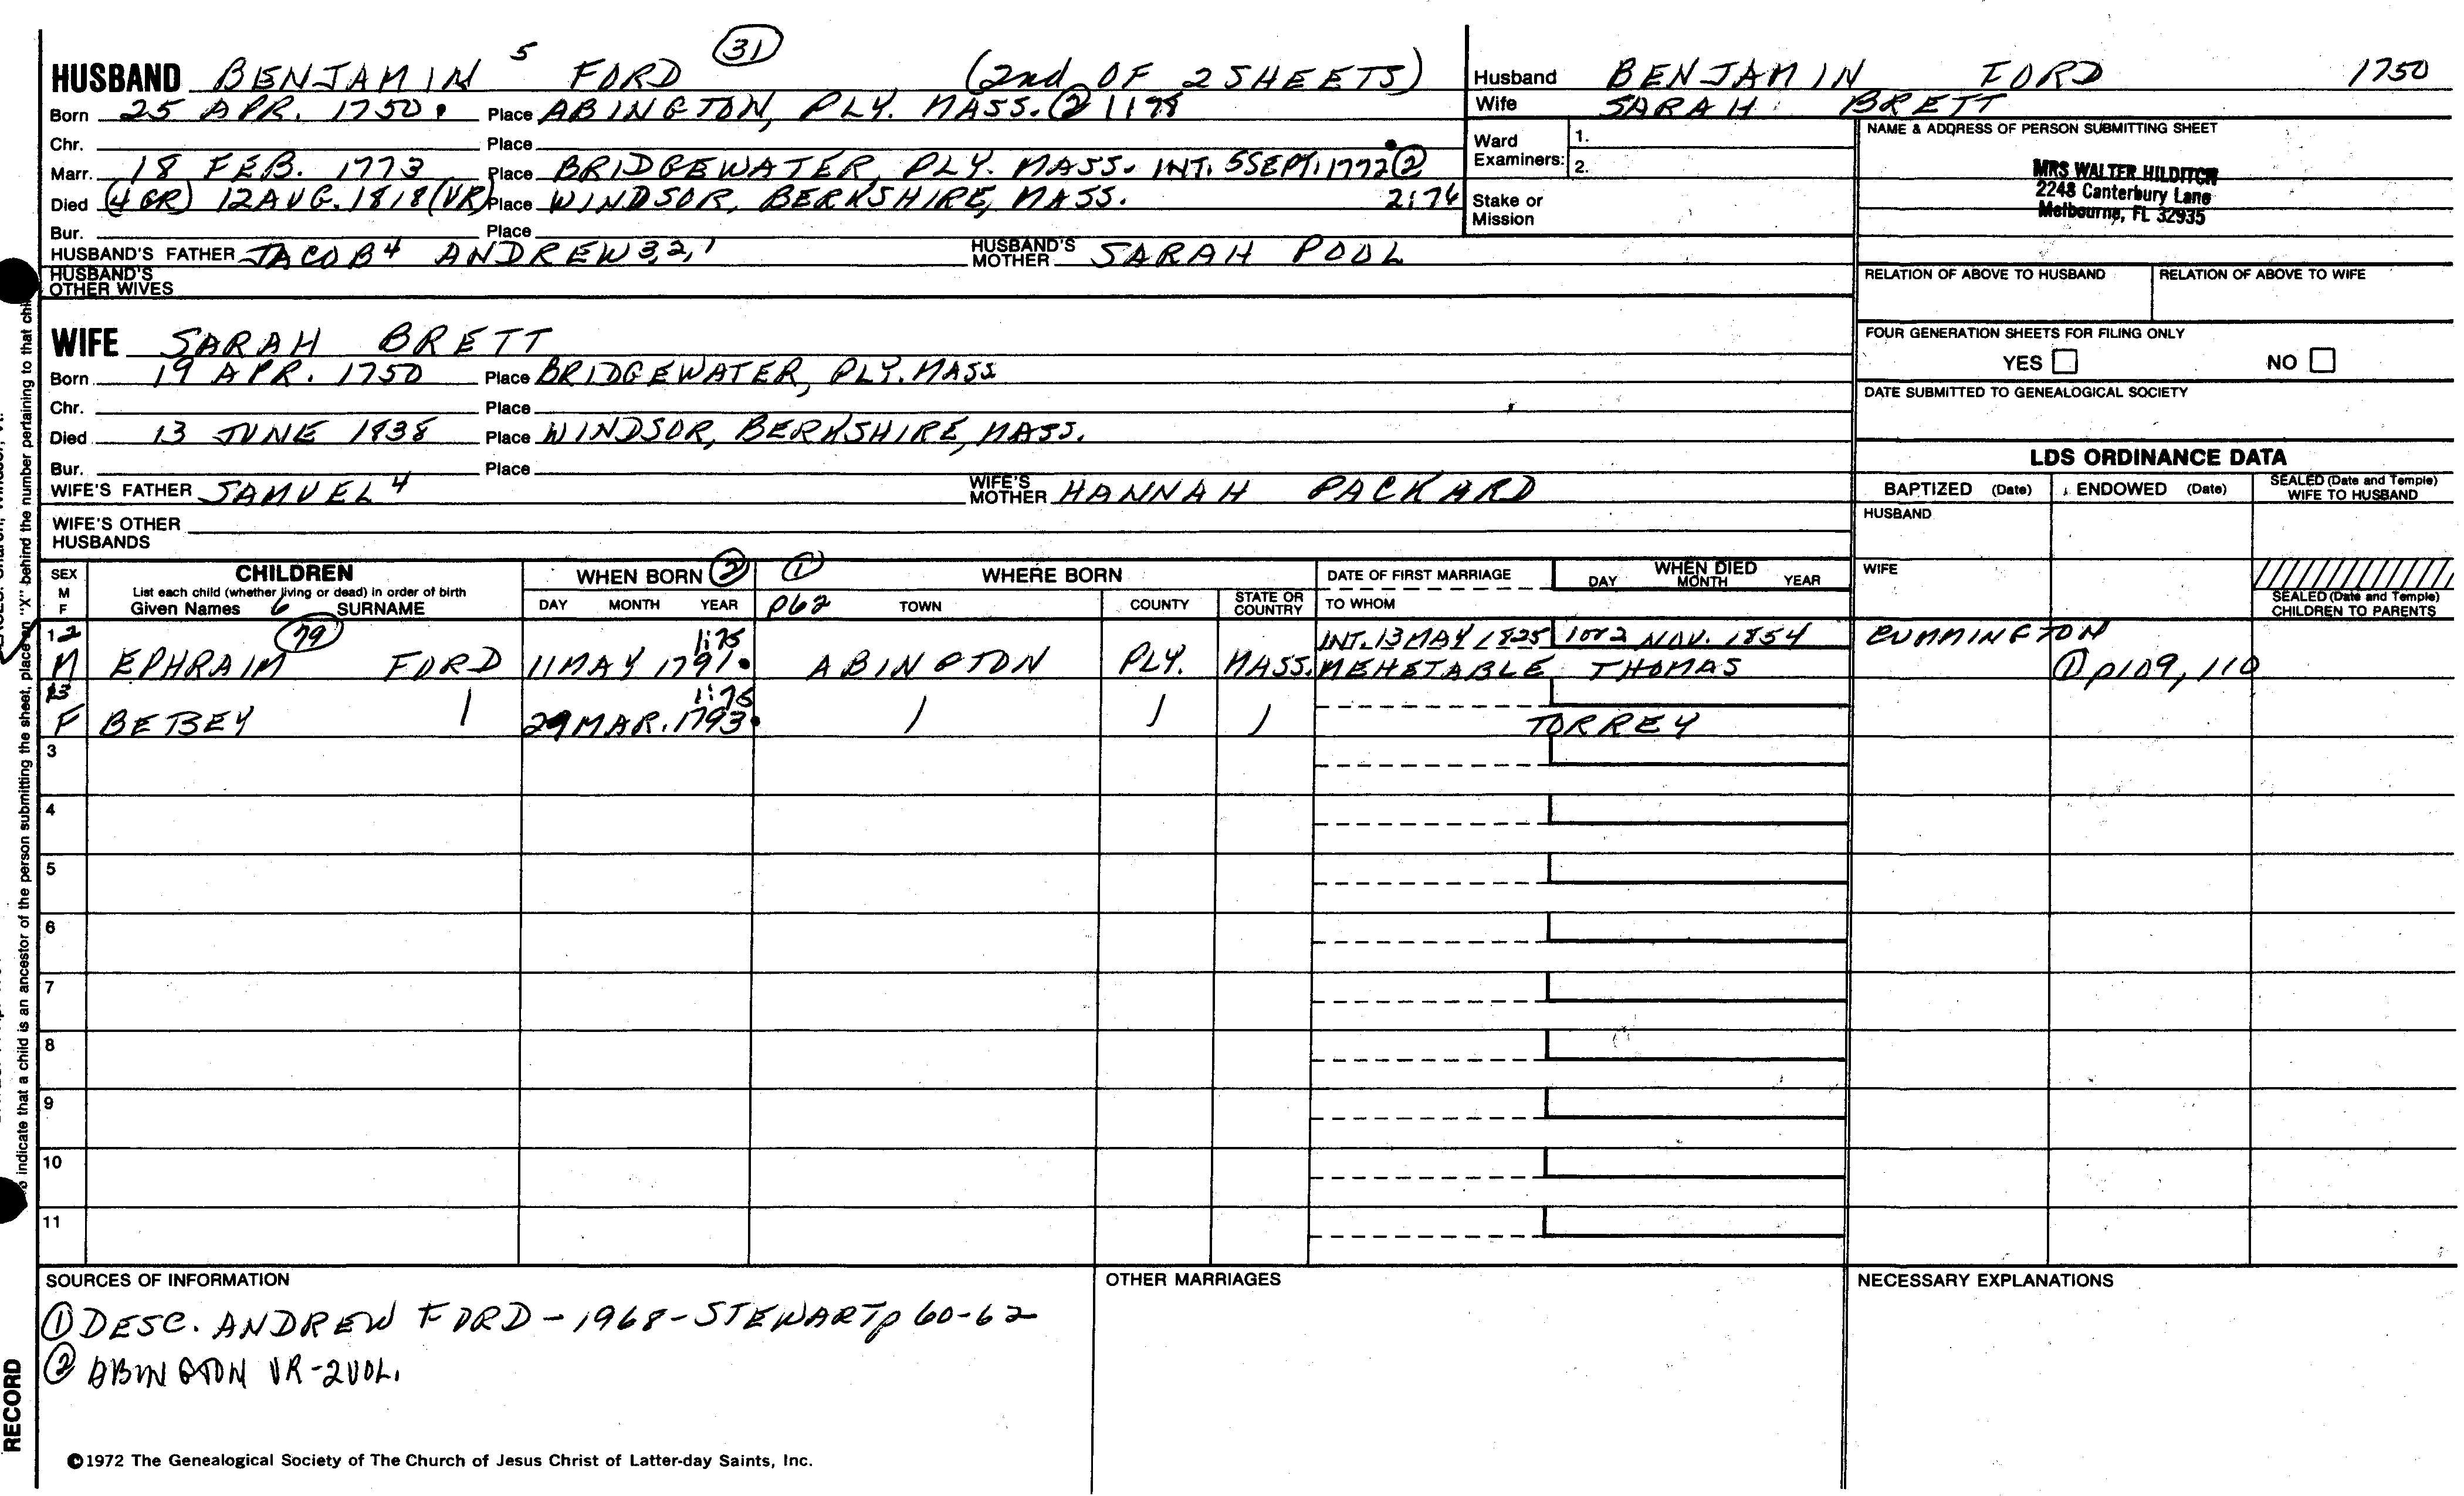 HUSBAND BENJAMIN 5 FORD (31) (2nd OF 2 SHEETS)
Born 25 APR. 1750. Place ABINGTON, PLY. MASS. (2) 1:78
Chr. Place
Marr. 18 FEB. 1773 Place BRIDGEWATER, PLY. MASS. INT. 5 SEPT. 1772 (2)
Died (4 GR) 12 AUG. 1818 (VR) Place WINDSOR, BERKSHIRE, MASS. 2:76
Bur. Place
HUSBAND'S FATHER JACOB 4 ANDREW 3,2,1 HUSBAND'S MOTHER SARAH POOL
HUSBAND'S OTHER WIVES
Husband BENJAMIN FORD 1750
Wife SARAH BRETT
Ward Examiners: 1.
2.
Stake or Mission
NAME & ADDRESS OF PERSON SUBMITTING SHEET
MRS WALTER HILDITCH
2248 Canterbury Lane
Melbourne, FL 32935
RELATION OF ABOVE TO HUSBAND RELATION OF ABOVE TO WIFE
FOUR GENERATION SHEETS FOR FILING ONLY
YES NO
DATE SUBMITTED TO GENEALOGICAL SOCIETY
WIFE SARAH BRETT
Born 19 APR. 1750 Place BRIDGEWATER, PLY. MASS
Chr. Place
Died 13 JUNE 1838 Place WINDSOR, BERKSHIRE, MASS.
Bur. Place
WIFE'S FATHER SAMUEL 4 WIFE'S MOTHER HANNAH PACKARD
WIFE'S OTHER HUSBANDS
LDS ORDINANCE DATA
BAPTIZED (Date) ENDOWED (Date) SEALED (Date and Temple) WIFE TO HUSBAND
HUSBAND
WIFE
SEALED (Date and Temple) CHILDREN TO PARENTS
SEX M F
CHILDREN
List each child (whether living or dead) in order of birth
Given Names 6 SURNAME
WHEN BORN (2)
DAY MONTH YEAR
(1) p62 WHERE BORN
TOWN COUNTY STATE OR COUNTRY
DATE OF FIRST MARRIAGE
TO WHOM
WHEN DIED
DAY MONTH YEAR
12 (79) 1:75 INT. 13 MAY 1825 1 or 2 NOV. 1854 CUMMINGTON
M EPHRAIM FORD 11 MAY 1791. ABINGTON PLY. MASS. MEHETABLE THOMAS (1) p109, 110
13 1:75
F BETSEY 29 MAR. 1793. TORREY
3
4
5
6
7
8
9
10
11
SOURCES OF INFORMATION
(1) DESC. ANDREW FORD - 1968 - STEWART p 60-62
(2) ABINGTON VR - 2 VOL.
OTHER MARRIAGES
NECESSARY EXPLANATIONS
©1972 The Genealogical Society of The Church of Jesus Christ of Latter-day Saints, Inc.
behind the number pertaining to that
indicate that a child is an ancestor of the person submitting the sheet, place an "X"
RECORD